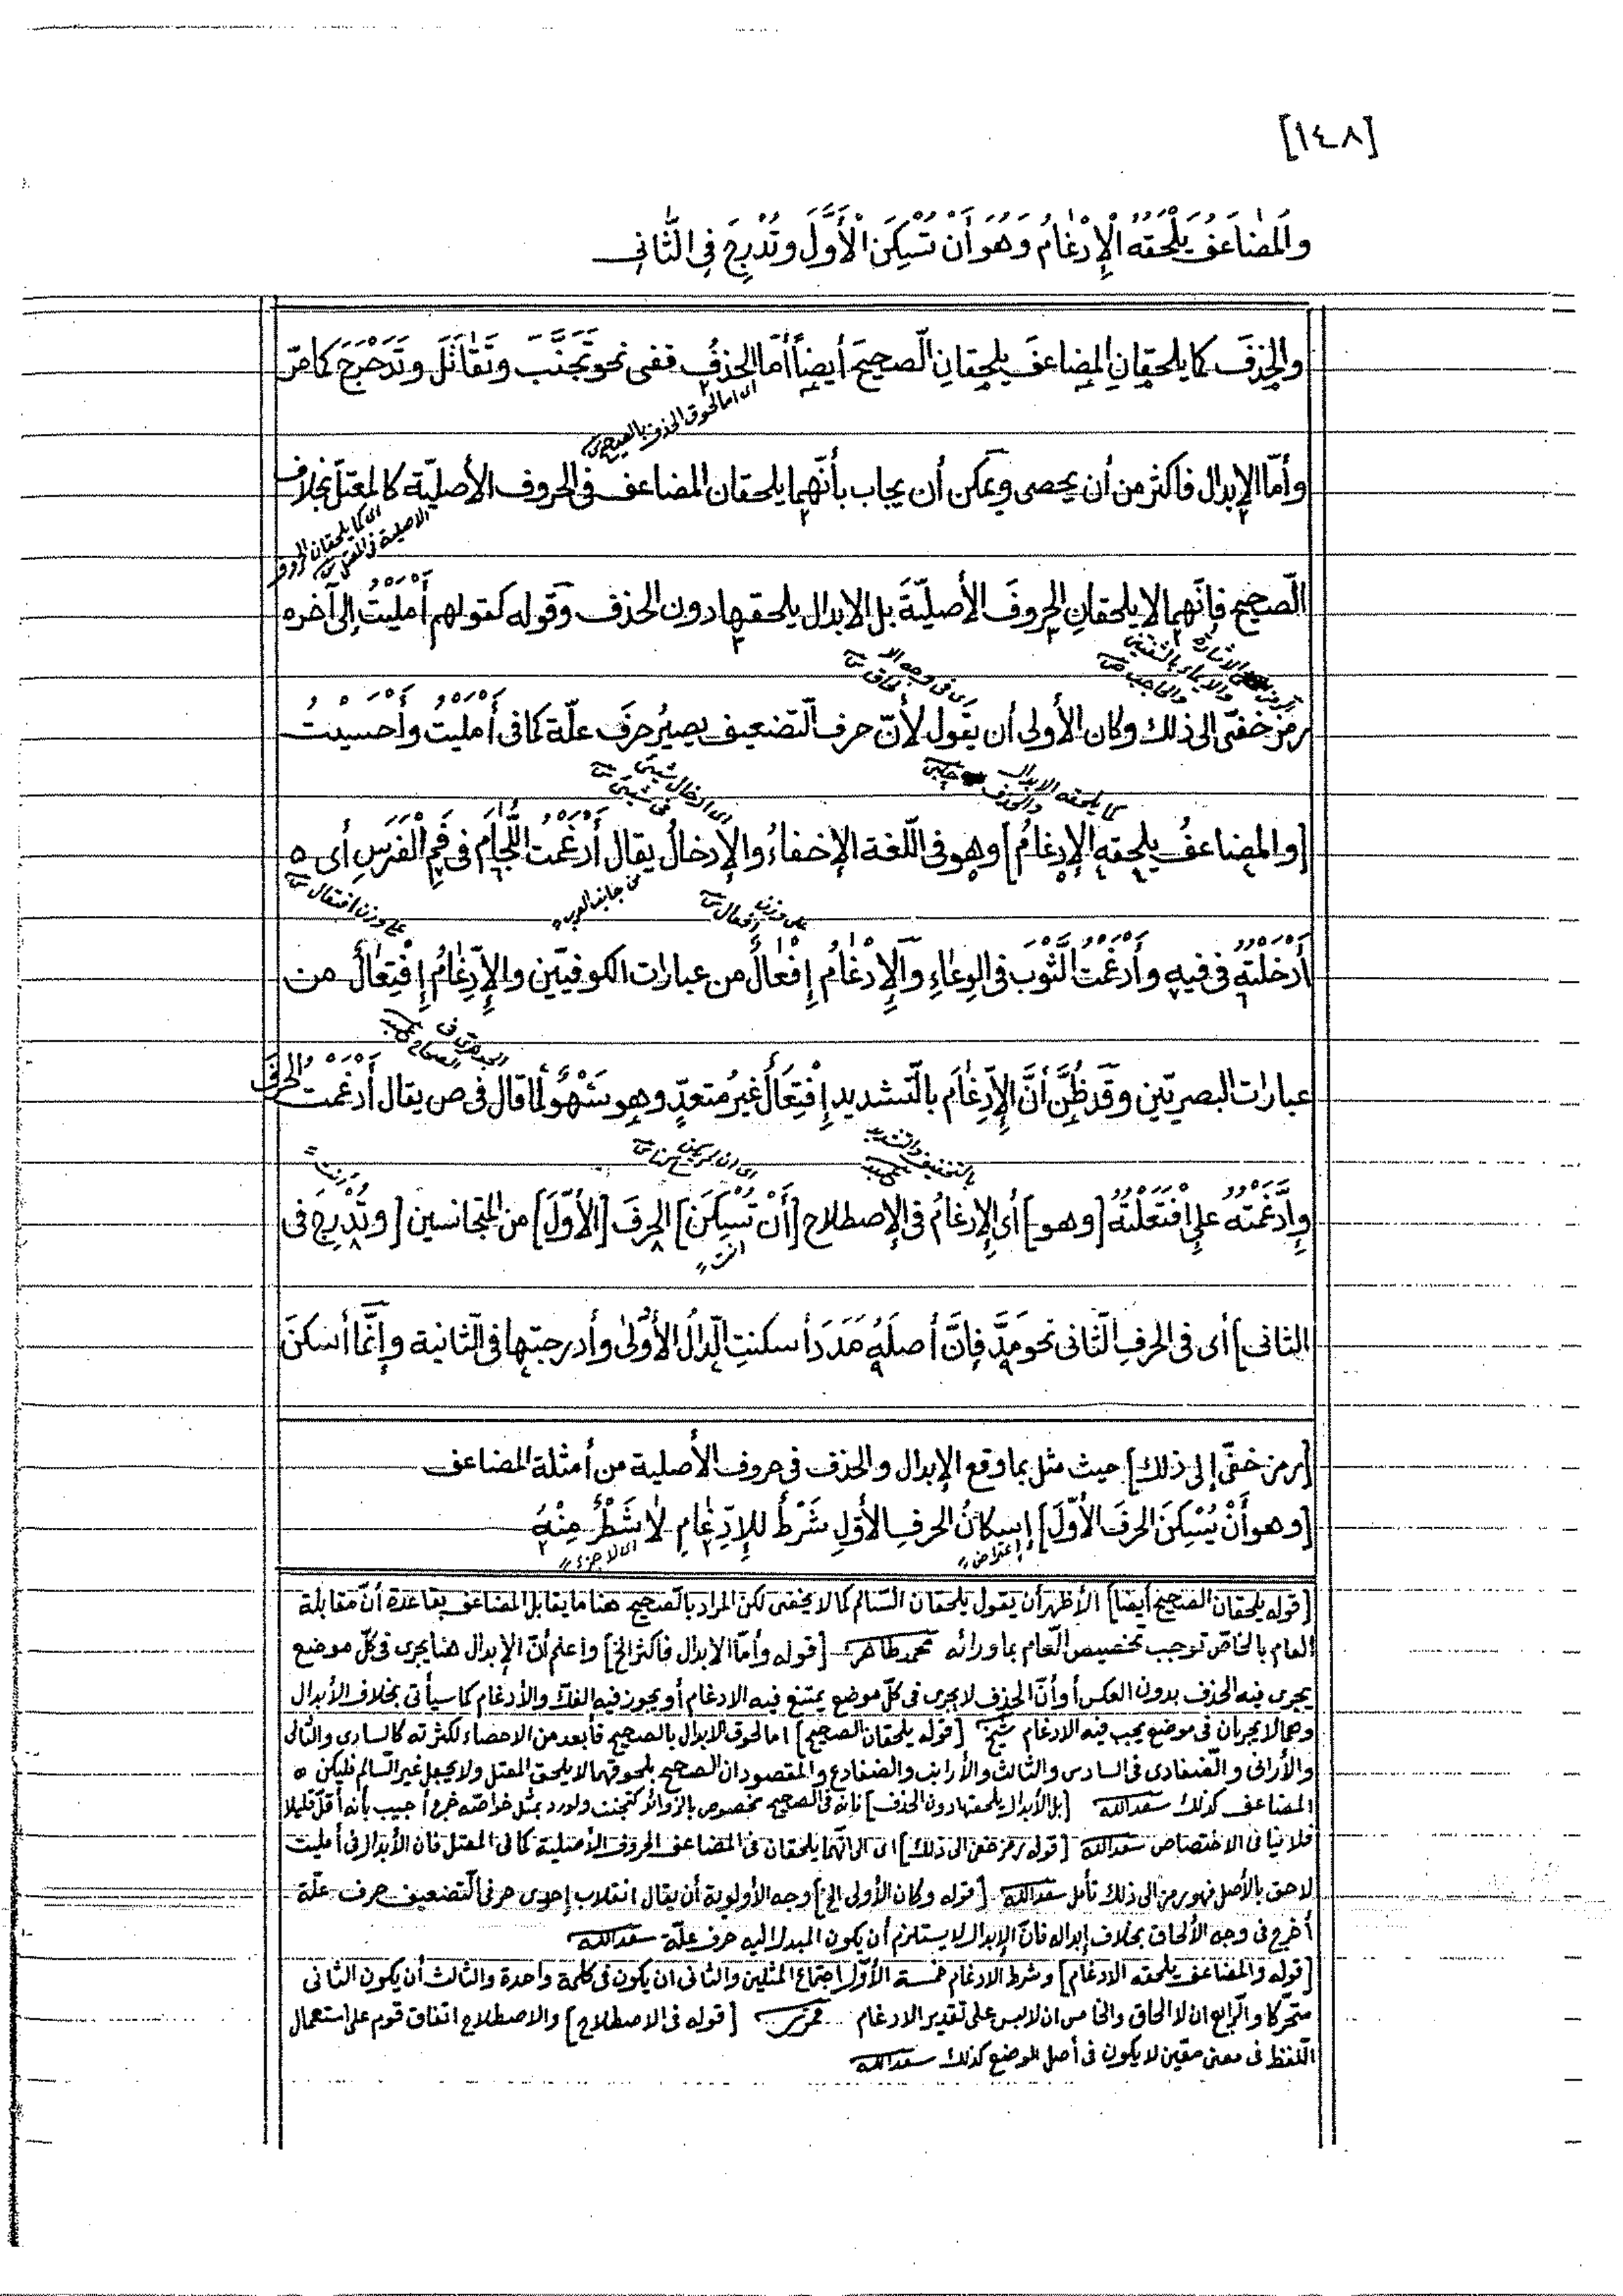 [١٤٨]
وَالمُضَاعَفُ يَلْحَقُهُ الْإِدْغَامُ وَهُوَ أَنْ تُسْكِنَ الْأَوَّلَ وَتُدْرِجَ فِي الثَّانِي
والحذفَ كما يلحقانِ المضاعفَ يلحقانِ الصّحيحَ أيضاً أمّا الحذفُ ففى نحو تَجَنَّبَ وتَقَاتَلَ وتَدَحْرَجَ كما مرّ
اى اما لحوق الحذف بالصحيح
وأمّا الإبدال فاكثر من أن يحصى ويمكن أن يجاب بأنّهما يلحقان المضاعف فى الحروف الأصليّة كالمعتلّ بخلاف
اى كما يلحقان الحروف
الاصلية فى المعتل
الصّحيح فإنّهما لا يلحقانِ الحروفَ الأصليّةَ بل الابدال يلحقها دون الحذف وقوله كقولهم أَمْلَيْتُ إلى آخره
اى فى وجه الا
لحاق
رمز خفىّ الى ذلك وكان الأولى أن يقول لأنّ حرف التضعيف يصيرُ حرفَ علّة كما فى أَمْلَيْتُ وأَحْسَيْتُ
كما يلحقه الابدال
والحذف
اى ادخال شيئ
فى شيئ
[والمضاعفُ يلحقه الإدغامُ] وهو فى اللّغة الإخفاءُ والإدخالُ يقال أَدْغَمْتُ اللِّجَامَ فى فَمِ الْفَرَسِ أى ٥
على وزن
إفعال
من جانب العرب
على وزن افتعال
أَدْخَلْتُهُ فى فيهِ وأَدْغَمْتُ الثَّوْبَ فى الوِعَاءِ وَالْإِدْغَامُ إِفْعَالٌ من عبارات الكوفيّين والْإِدِّغَامُ إِفْتِعَالٌ من
الجوهرى فى
الصحاح
عبارات البصريّين وقد ظُنَّ أنَّ الإدِّغَامَ بالتّشديد إِفْتِعَالٌ غيرُ متعدٍّ وهو سَهْوٌ لما قال فى ص يقال أَدْغَمْتُ الحرفَ
بالتخفيف والتشديد
وإدَّغَمْتُهُ على افْتَعَلْتُهُ [وهو] أى الإدغامُ فى الإصطلاح [أَنْ تُسْكِنَ] الحرفَ [الأوّلَ] من المتجانسين [وتُدْرِجَ فى
انت
الثانى] أى فى الحرفِ الثّانى نحو مَدَّ فإنَّ أصلَهُ مَدَدَ أسكنتِ الدّالُ الأُولىٰ وأدرجتها فى الثّانية وإنَّما أسكنَ
[رمز خفىّ إلى ذلك] حيث مثل بما وقع الإبدال والحذف فى حروف الأصلية من أمثلة المضاعف
[وهو أَنْ يُسْكِنَ الحرفَ الأوّلَ] إسكانُ الحرفِ الأوّلِ شَرْطٌ للإدّغامِ لا شَطْرٌ مِنْهُ
إعتراض
اى لا جزء
[قوله يلحقان الصحيح أيضا] الأظهر أن يقول يلحقان السّالم كما لا يخفى لكن المراد بالصّحيح هنا ما يقابل المضاعف بقاعدة أنّ مقابلة
العام بالخاصّ توجب تخصيص العام بما ورائه محمد طاهر [قوله وأمّا الابدال فاكثر الخ] واعلم أنّ الإبدال هنا يجرى فى كلّ موضع
يجرى فيه الحذف بدون العكس أو أنّ الحذف لا يجرى فى كلّ موضع يمتنع فيه الادغام أو يجوز فيه الفكّ والأدغام كما سيأتى بخلاف الأبدال
وهما لا يجريان فى موضع يجب فيه الادغام شيخ [قوله يلحقان الصحيح] اما لحوق الابدال بالصحيح فأبعد من الاحصاء لكثرته كالسادى والثالى
والأرانى والضفادى فى السادس والثالث والأرانب والضفادع والمقصود ان الصحيح بلحوقهما لا يلحق المعتل ولا يجعل غير السّالم فليكن ٥
المضاعف كذلك سعدالله [بل الأبدال يلحقها دون الحذف] فإنه فى الصحيح مخصوص بالزوائد كتجنب ولو رد بمثل خواصّه خرج أجيب بأنه أقلّ قليلا
فلا ينافى الاختصاص سعدالله [قوله رمز خفى الى ذلك] اى الى انّهما يلحقان فى المضاعف الحروف الأصلية كما فى المعتل فان الأبدال فى أمليت
لاحق بالأصل فهو رمز الى ذلك تأمل سعدالله [قوله وكان الأولى الخ] وجه الأولوية أن يقال انقلاب إحدى حرفى التّضعيف حرف علّة
أخرج فى وجه الألحاق بخلاف إبداله فانّ الإبدال لا يستلزم أن يكون المبدل اليه حرف علّة سعدالله
[قوله والمضاعف يلحقه الادغام] وشرط الادغام خمسة الأوّل اجتماع المثلين والثانى ان يكون فى كلمة واحدة والثالث أن يكون الثانى
متحرّكا والرّابع ان لا الحاق والخامس ان لا لبس على تقدير الادغام [قوله فى الاصطلاح] والاصطلاح اتفاق قوم على استعمال
اللفظ فى معنى معّين لا يكون فى أصل الوضع كذلك سعدالله